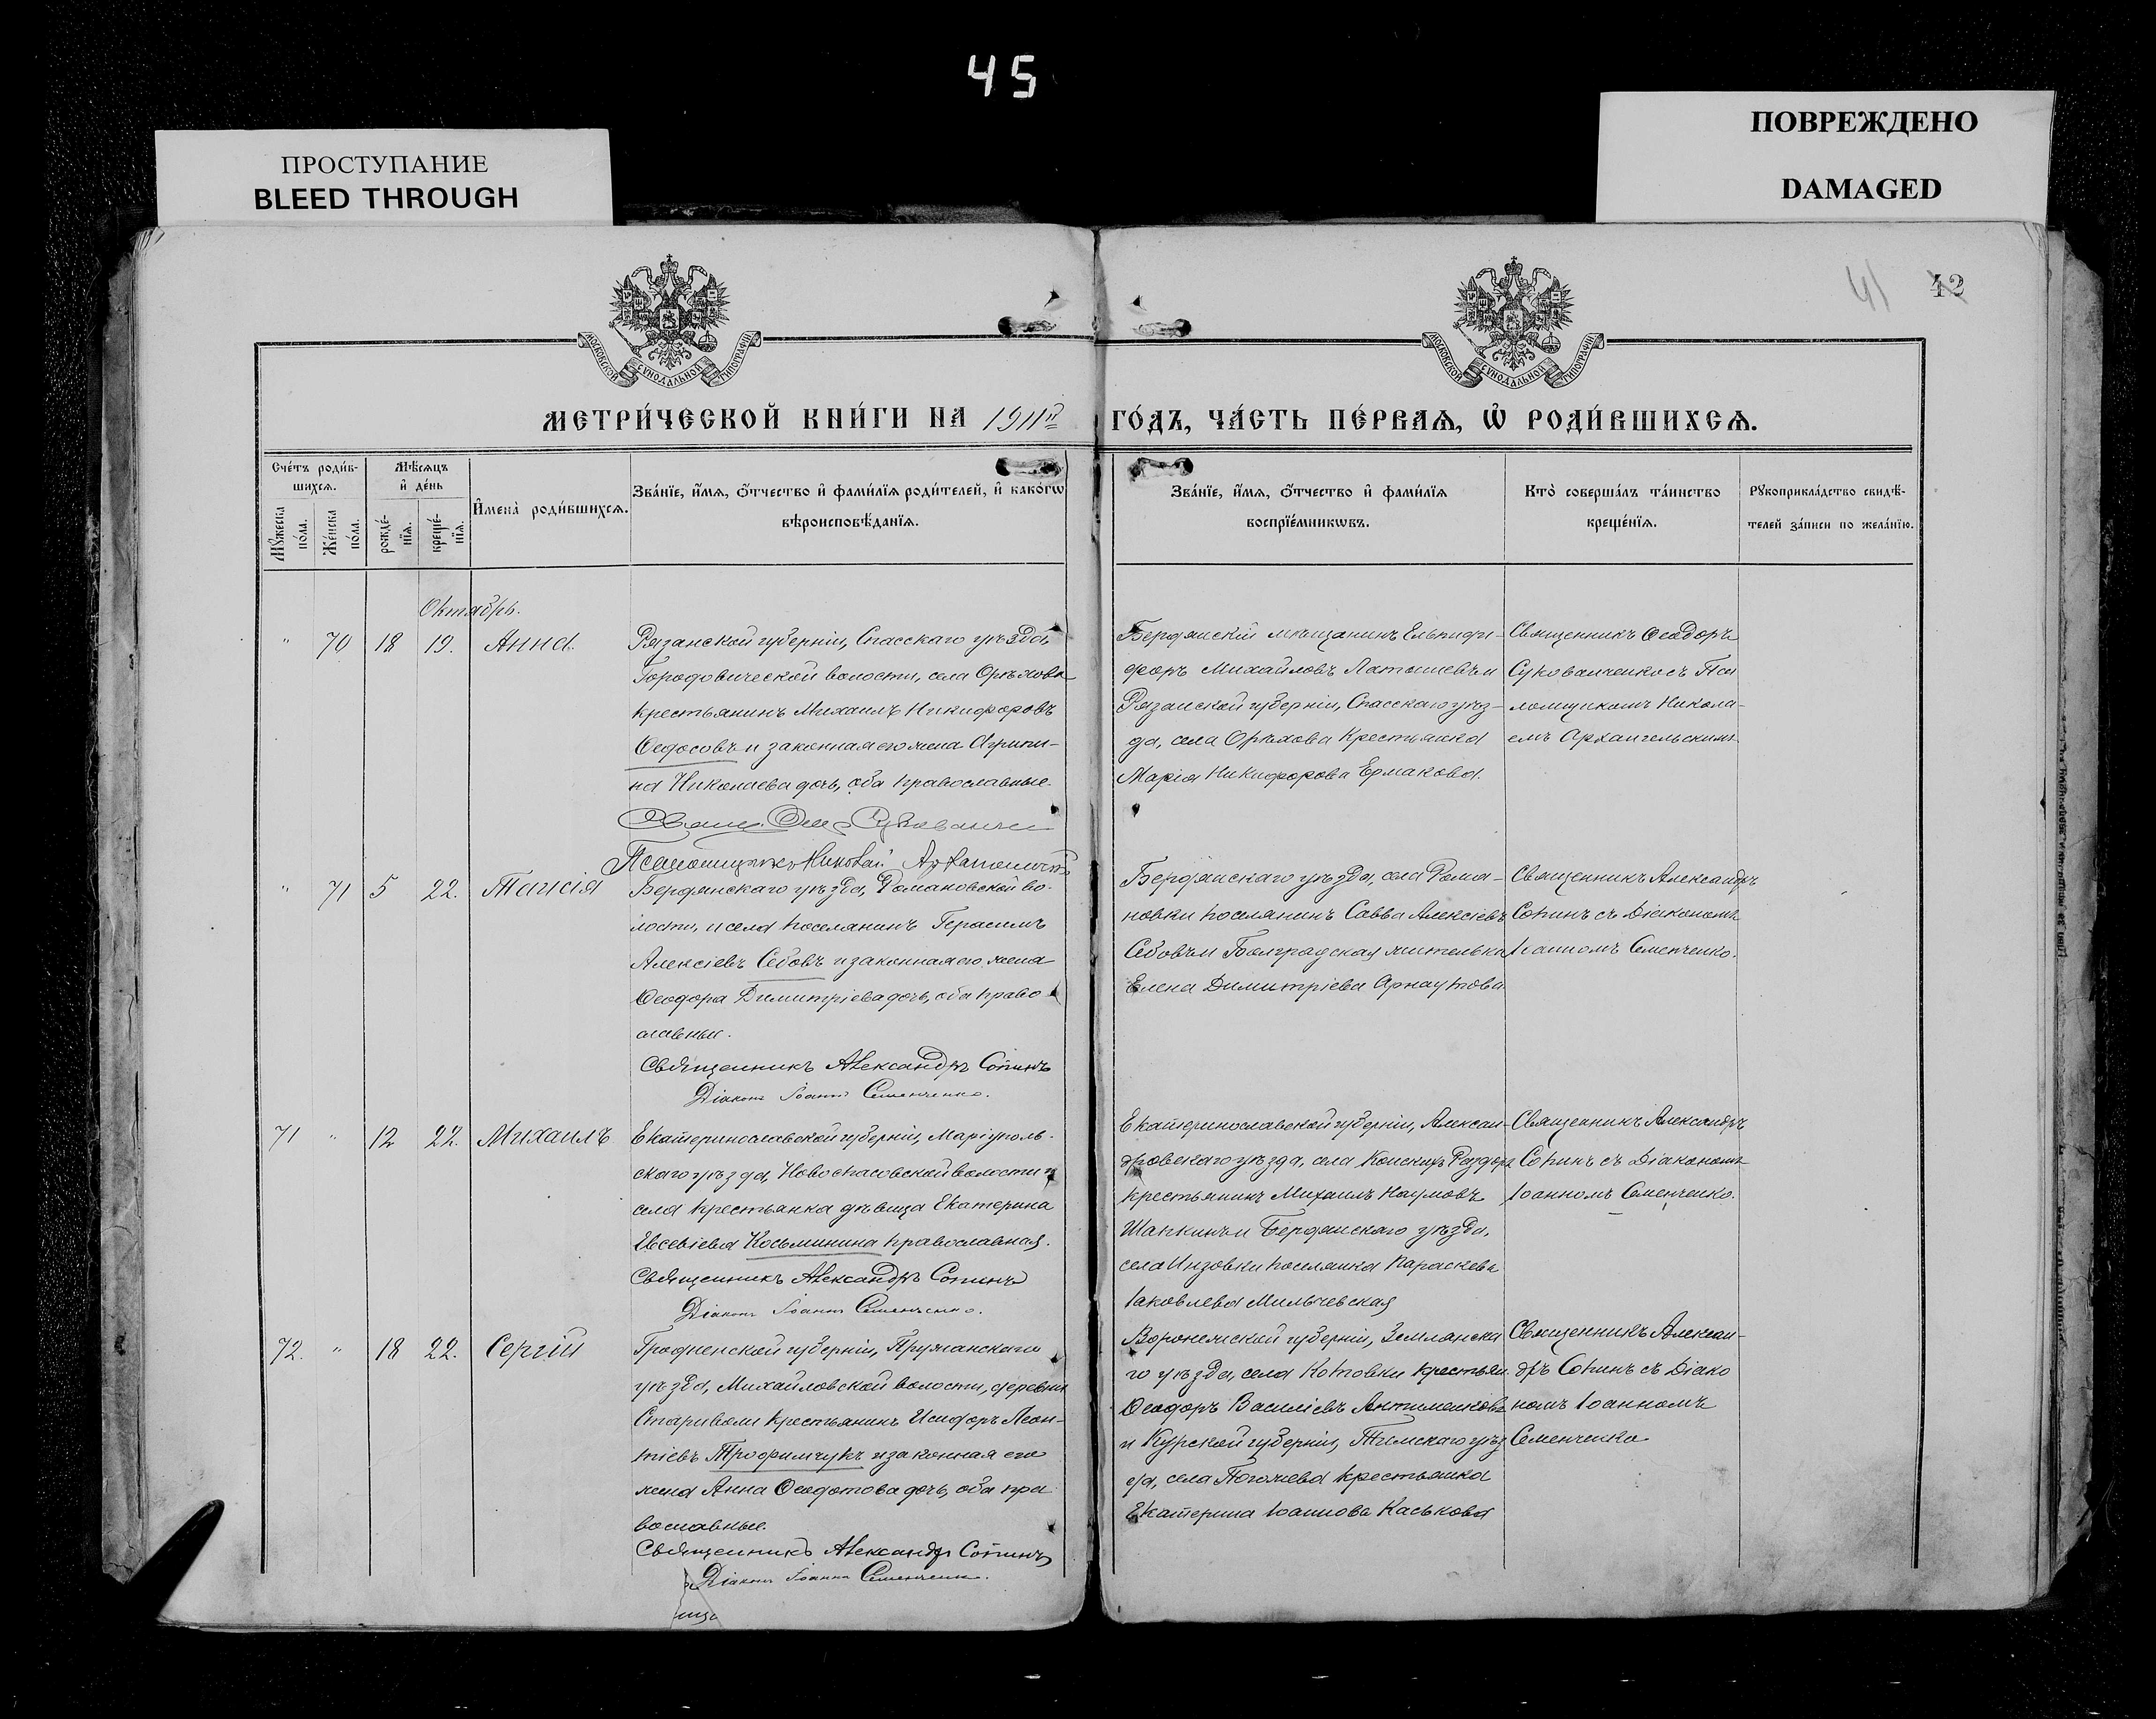 45
ПРОСТУПАНИЕ
BLEED THROUGH
ПОВРЕЖДЕНО
DAMAGED
41
42
МОСКОВСКОЙ СѴНОДАЛЬНОЙ ТИПОГРАФІИ
МОСКОВСКОЙ СѴНОДАЛЬНОЙ ТИПОГРАФІИ
МЕТРИ́ЧЕСКОЙ КНИ́ГИ НА 1911й ГО́ДЪ, ЧА́СТЬ ПЕ́РВАѦ, Ѡ҆ РОДИ́ВШИХСѦ.
Сче́тъ роди́в-
шихсѧ.
Мꙋ́жеска по́ла.
Же́нска по́ла.
Мѣ́сѧцъ
и҆ де́нь
рожде́-нїѧ.
креще́-нїѧ.
И҆мена̀ роди́вшихсѧ.
Зва́нїе, и҆́мѧ, ѻ҆́тчество и҆ фами́лїѧ роди́телей, и҆ како́гѡ
вѣроисповѣ́данїѧ.
Зва́нїе, и҆́мѧ, ѻ҆́тчество и҆ фами́лїѧ
воспрїе́мникѡвъ.
Кто̀ соверша́лъ та́инство
креще́нїѧ.
Рꙋкоприкла́дство свидѣ́-
телей за́писи по жела́нїю.
Октябрь.
" 70 18 19. Анна.
Рязанской губерніи, Спасскаго уѣзда,
Городовической волости, села Орѣхова
крестьянинъ Михаилъ Никифоровъ
Ѳедосовъ и законная его жена Агрипи-
на Николаева дочь, оба православные.
Псаломщикъ Николай
Бердянскій мѣщанинъ Ельпиди-
форъ Михайловъ Латышевъ и
Рязанской губерніи, Спасскаго уѣз-
да, села Орѣхова крестьянка
Марія Никифорова Ермакова.
Священникъ Ѳеодоръ
Сукованченко съ Пса
ломщикомъ Никола-
емъ Архангельскимъ
" 71 5 22. Таисія
Бердянскаго уѣзда, Романовской во-
лости, и села поселянинъ Герасимъ
Алексіевъ Себовъ и законная его жена
Ѳеодора Димитріева дочь, оба право
славные.
Священникъ Александръ Сопинъ
Діаконъ Іоаннъ Семенченко.
Бердянскаго уѣзда, села Рома-
новки поселянинъ Савва Алексіевъ
Себовъ и Болградская жителька
Елена Димитріева Арнаутова.
Священникъ Александръ
Сопинъ съ Діакономъ
Іоанномъ Семенченко.
71 " 12 22. Михаилъ
Екатеринославской губерніи, Маріуполь-
скаго уѣзда, Новоспасовской волости и
села крестьянка дѣвица Екатерина
Евсевіева Косьминина православная.
Священникъ Александръ Сопинъ
Діаконъ Іоаннъ Семенченко.
Екатеринославской губерніи, Алексан-
дровскаго уѣзда, села Конскихъ Раздоръ
крестьянинъ Михаилъ Наумовъ
Шапкинъ и Бердянскаго уѣзда,
села Инзовки поселянка Параскева
Іаковлева Мильчевская
Священникъ Александръ
Сопинъ съ Діакономъ
Іоанномъ Семенченко.
72. " 18 22. Сергій
Гродненской губерніи, Пружанскаго
уѣзда, Михайловской волости, деревни
Стариволи крестьянинъ Исидоръ Леон-
тіевъ Трофимчукъ и законная его
жена Анна Ѳеодотова дочь, оба пра
вославные.
Священникъ Александръ Сопинъ
Діаконъ Іоаннъ Семенченко.
Воронежской губерніи, Землянска
го уѣзда, села Котовки крестьян.
Ѳеодоръ Василіевъ Антименковъ
и Курской губерніи, Тимскаго уѣз
да, села Погожева крестьянка
Екатерина Іоаннова Каськова
Священникъ Алексан-
дръ Сопинъ съ Діако
номъ Іоанномъ
Семенченко